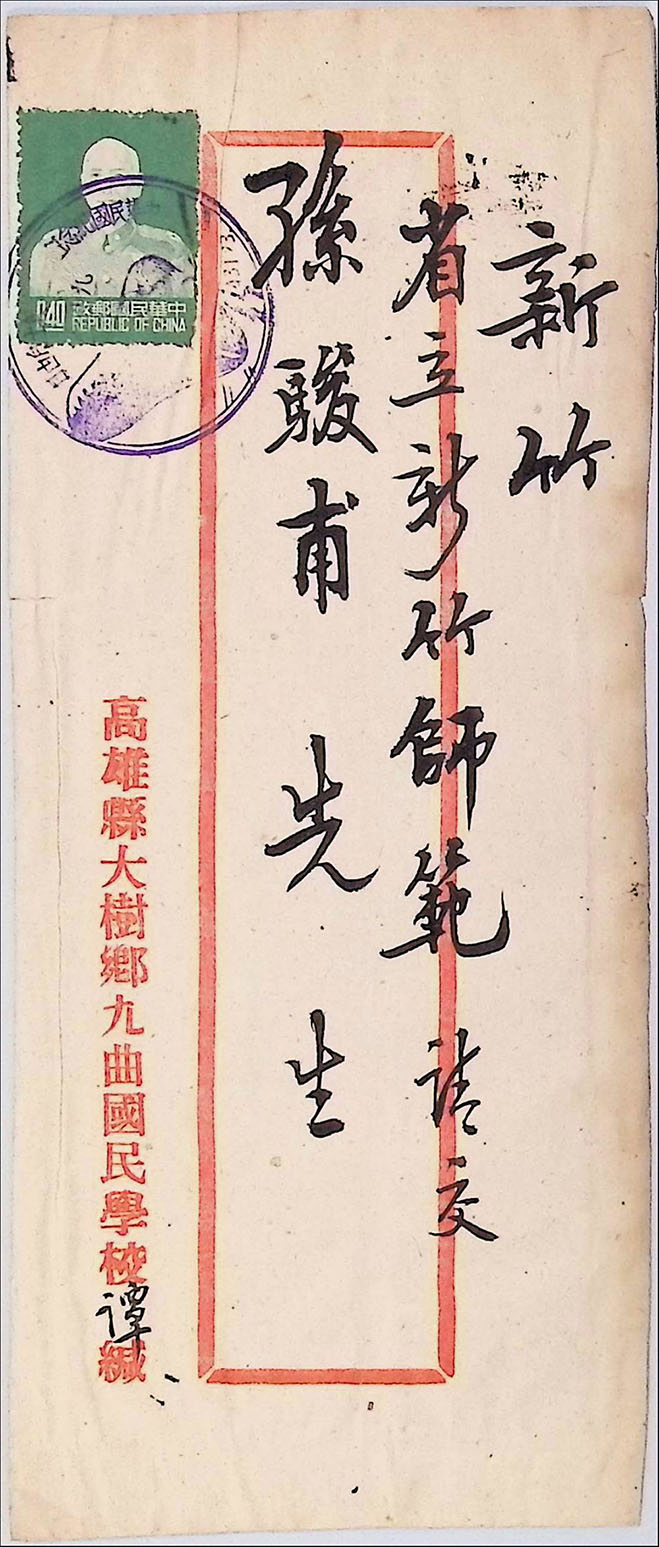 新竹
省立新竹師範 請交
孫駿甫 先 生
高雄縣大樹鄉九曲國民學校 譚 緘
0.40
政郵國民華中
REPUBLIC OF CHINA